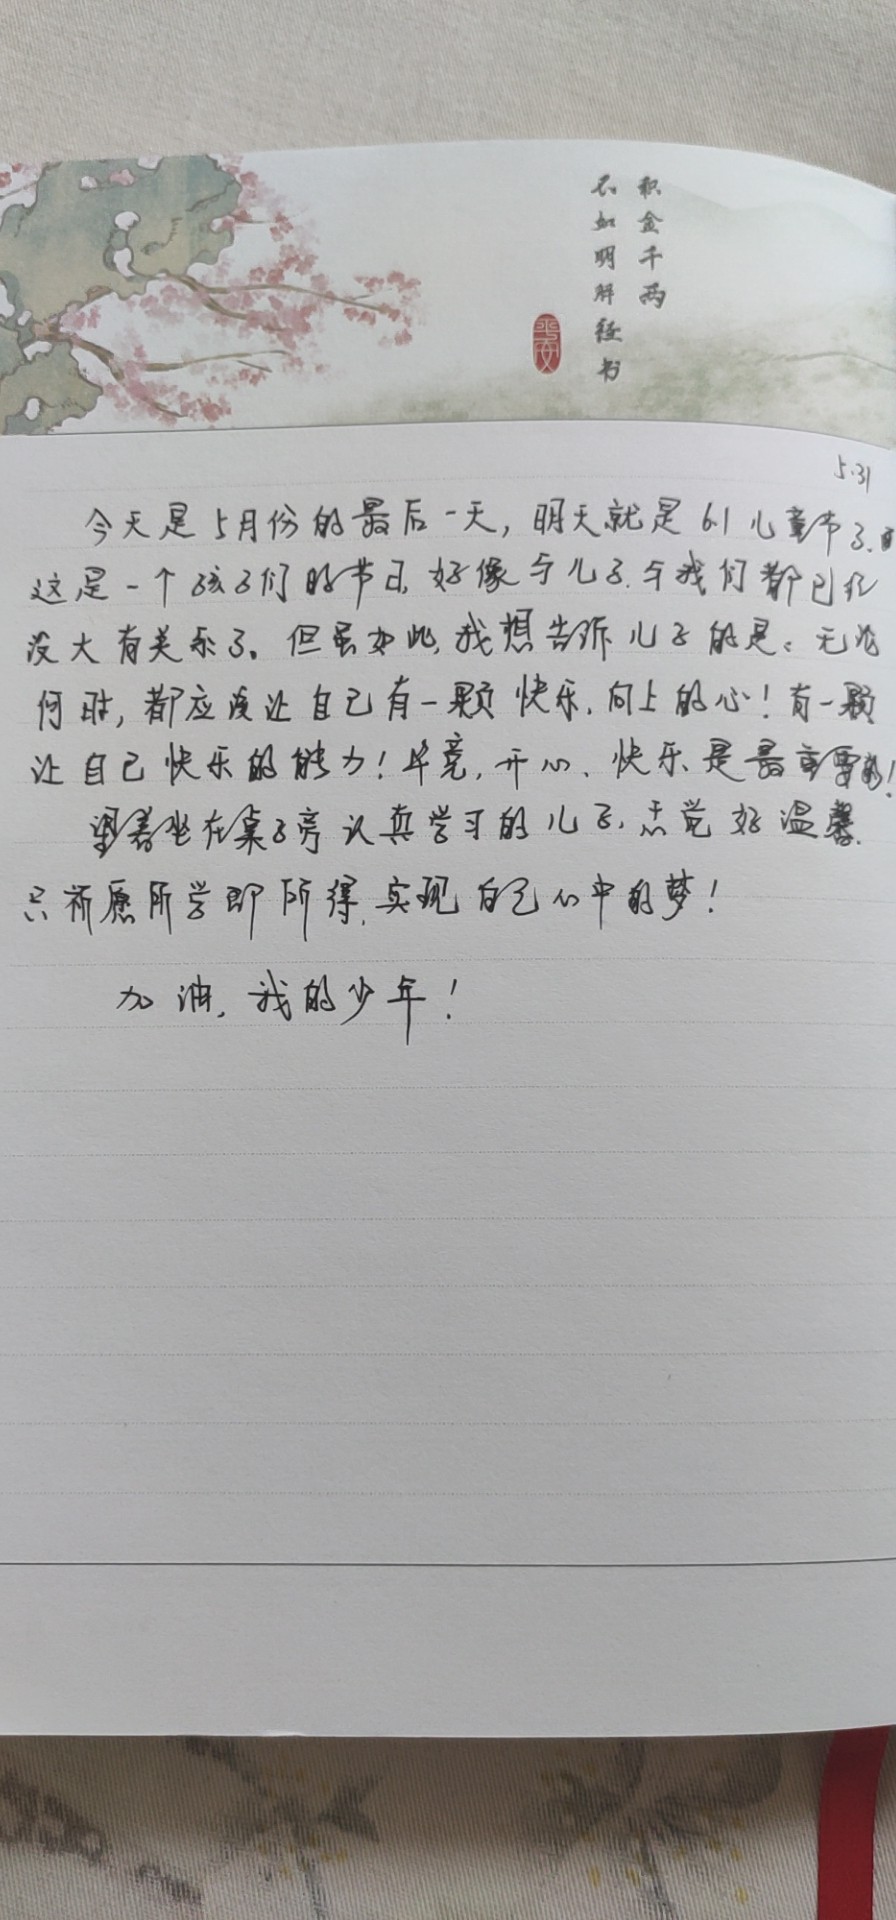 积金千两
不如明解经书
平安
5.31
今天是5月份的最后一天，明天就是61儿童节了。
这是一个孩子们的节日，好像与儿子、与我们都已经
没大有关系了。但虽如此，我想告诉儿子的是：无论
何时，都应该让自己有一颗快乐、向上的心！有一颗
让自己快乐的能力！毕竟，开心、快乐是最重要的！
望着坐在桌子旁认真学习的儿子，志觉好温馨，
只祈愿所学即所得，实现自己心中的梦！
加油，我的少年！